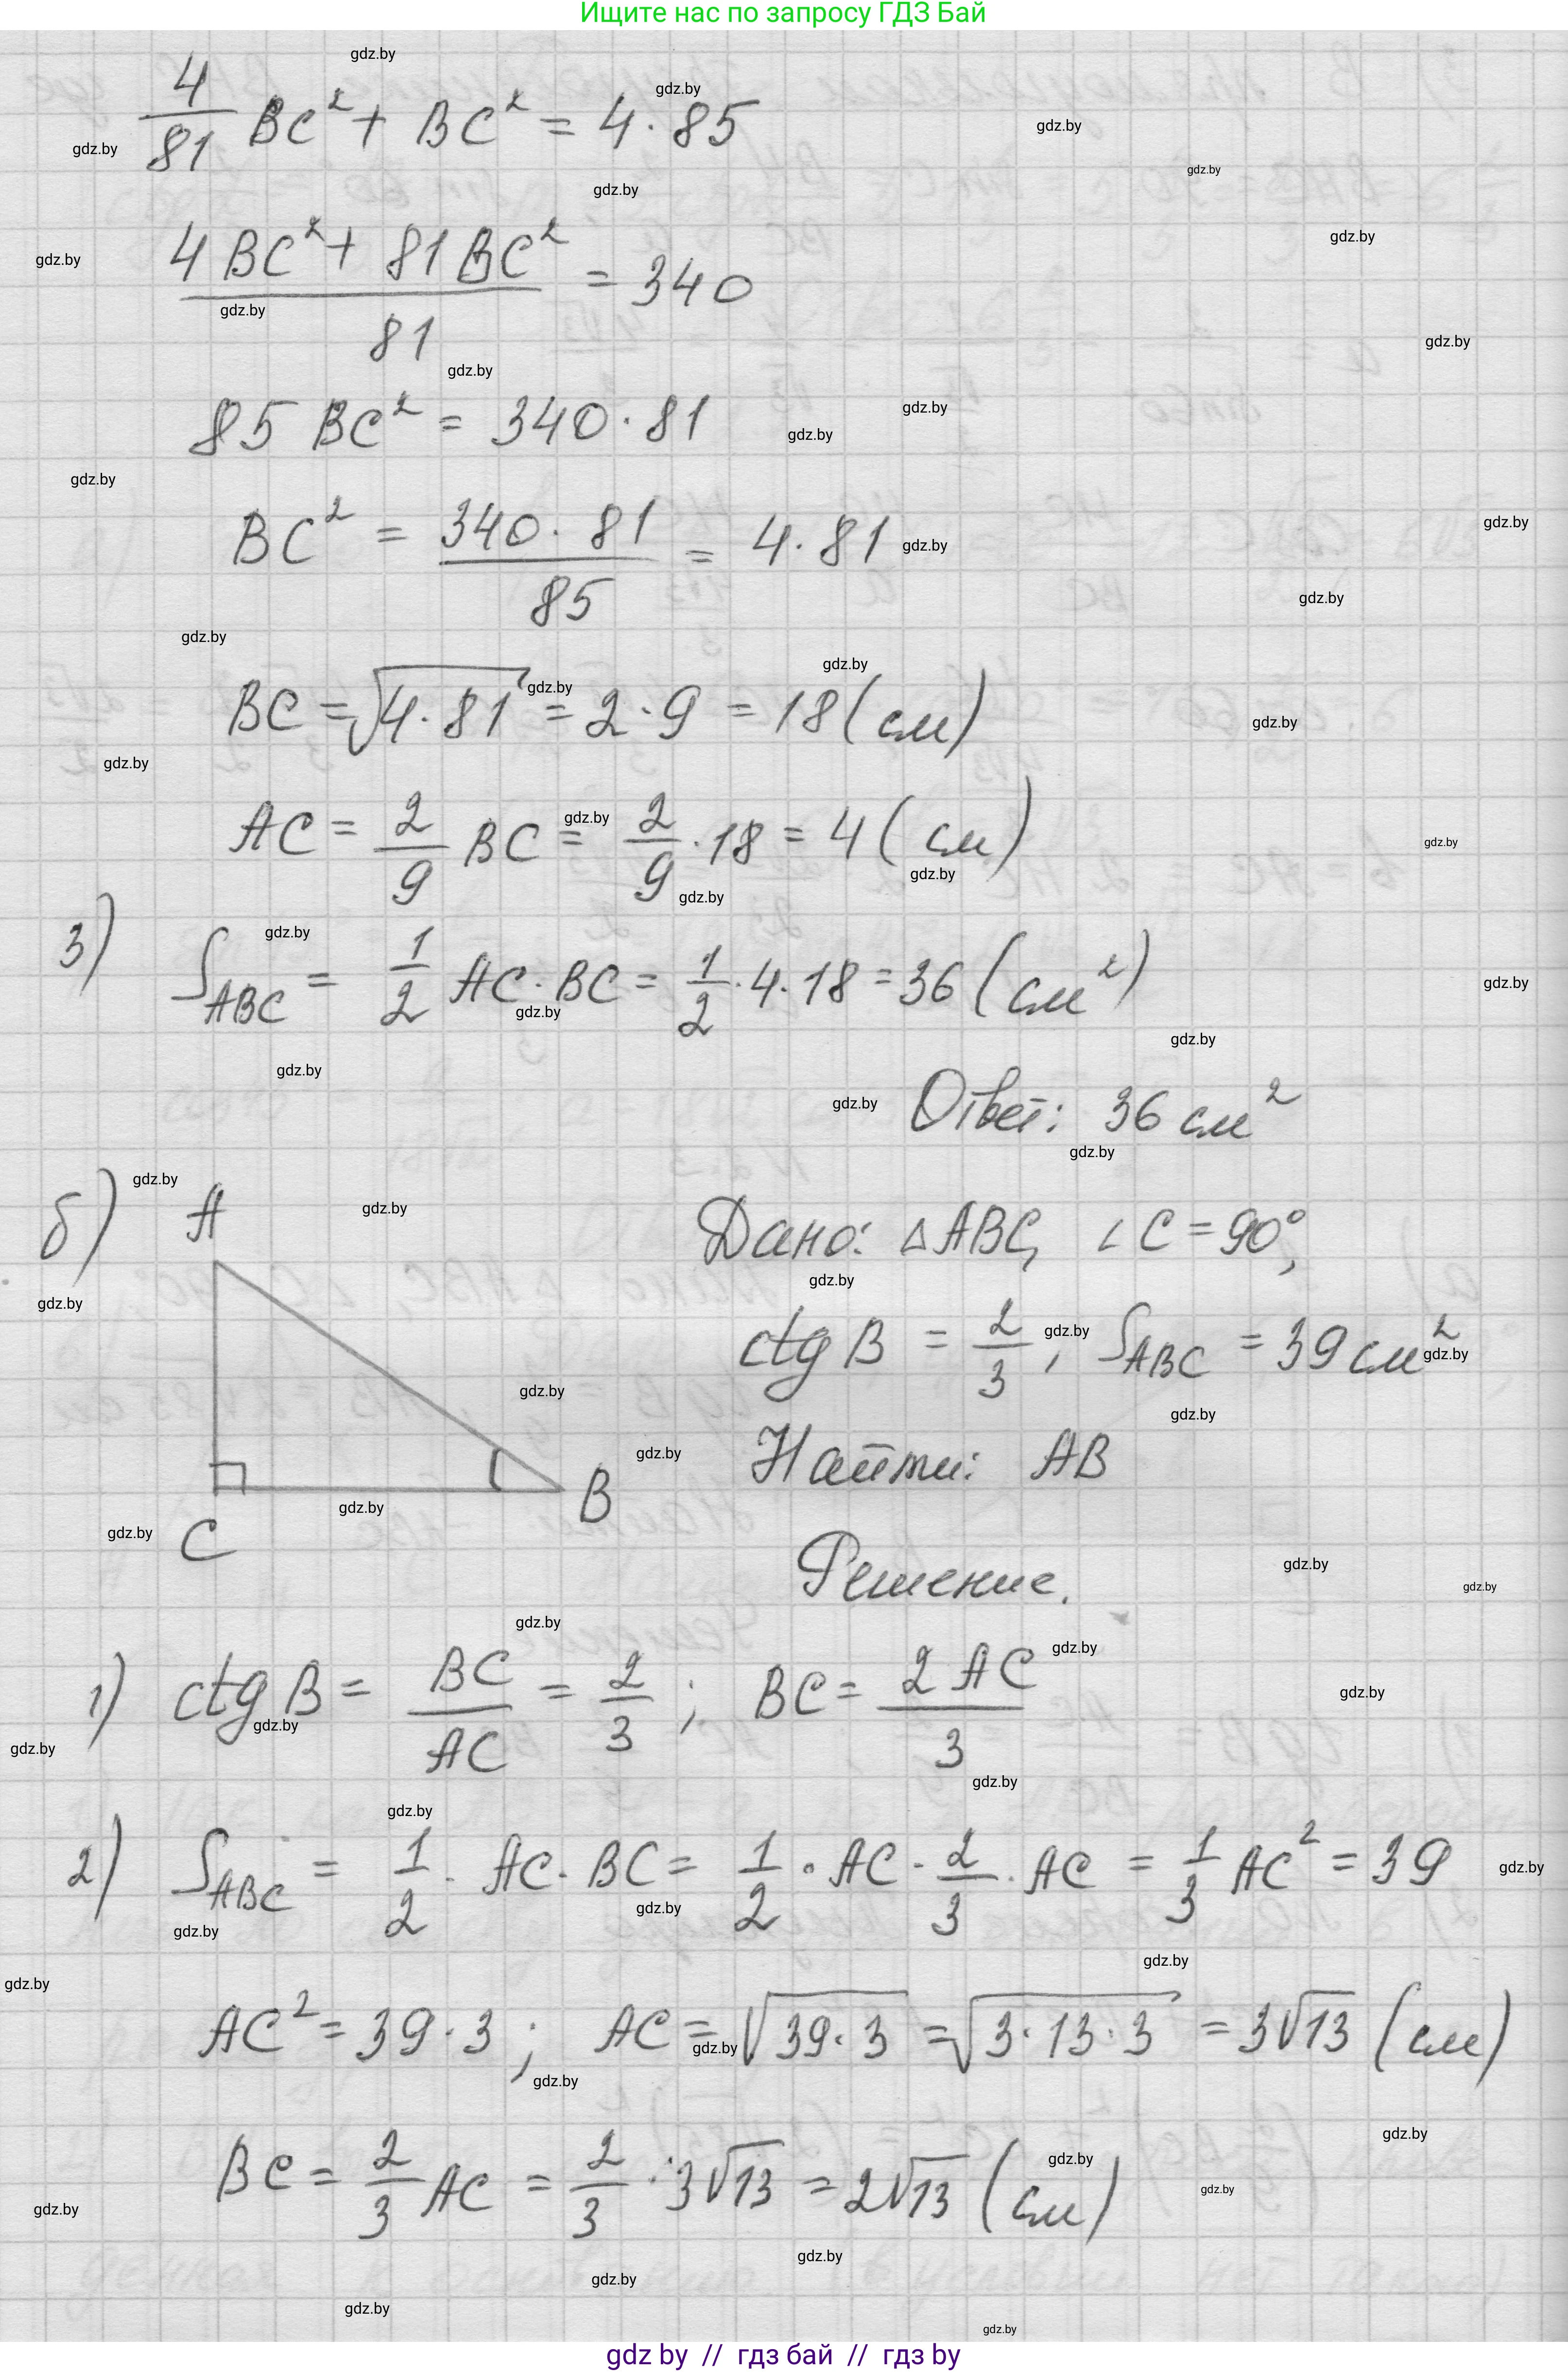 Ищите нас по запросу ГДЗ Бай
4/81 BC² + BC² = 4 · 85
(4 BC² + 81 BC²)/81 = 340
85 BC² = 340 · 81
BC² = (340 · 81)/85 = 4 · 81
BC = √(4 · 81) = 2 · 9 = 18 (см)
AC = 2/9 BC = 2/9 · 18 = 4 (см)
3) S_ABC = 1/2 AC · BC = 1/2 · 4 · 18 = 36 (см²)
Ответ: 36 см²
б) A
Дано: △ABC, ∠C = 90°,
ctg B = 2/3, S_ABC = 39 см²
Найти: AB
B
C
Решение.
1) ctg B = BC/AC = 2/3; BC = 2 AC/3
2) S_ABC = 1/2 · AC · BC = 1/2 · AC · 2/3 · AC = 1/3 AC² = 39
AC² = 39 · 3; AC = √(39 · 3) = √(3 · 13 · 3) = 3√13 (см)
BC = 2/3 AC = 2/3 · 3√13 = 2√13 (см)
gdz by // гдз бай // гдз by